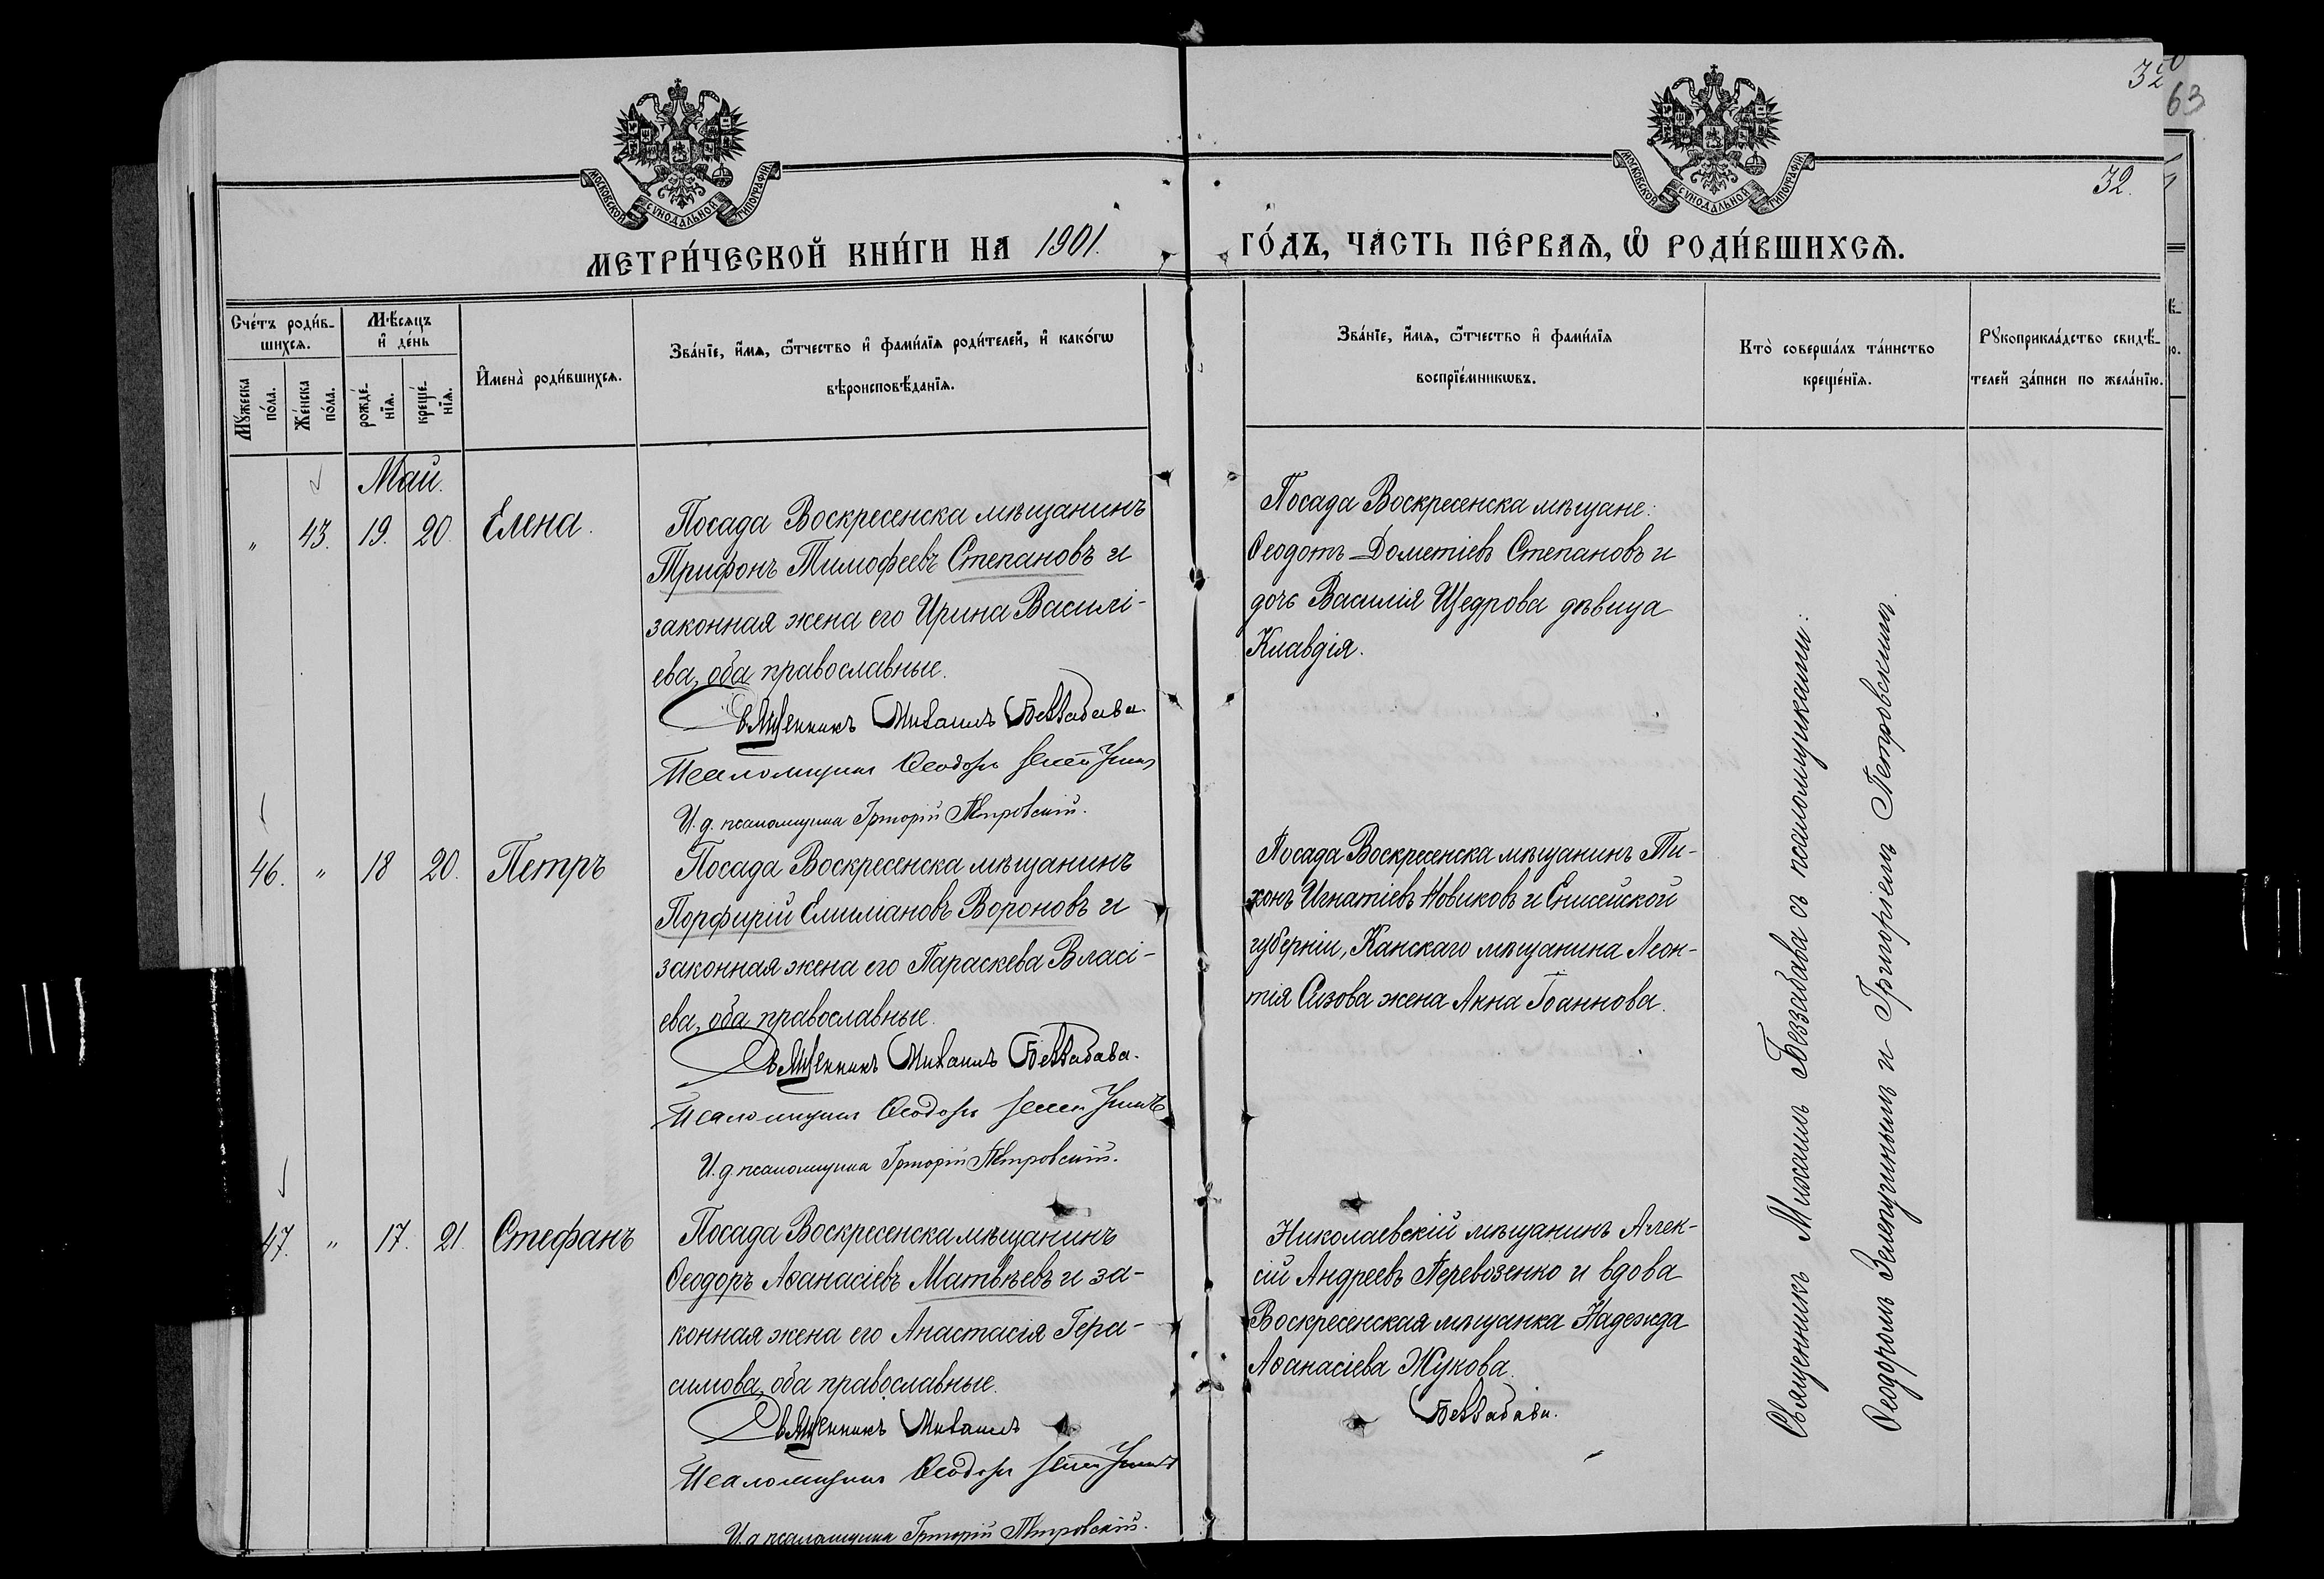 32
63
32.
МОСКОВСКОЙ СѴНОДАЛЬНОЙ ТИПОГРАФІИ
МОСКОВСКОЙ СѴНОДАЛЬНОЙ ТИПОГРАФІИ
МЕТРИ́ЧЕСКОЙ КНИ́ГИ НА 1901. ГО́ДЪ, ЧА́СТЬ ПЕ́РВАЯ, Ѡ҆ РОДИ́ВШИХСЯ.
Сче́тъ роди́в-
шихсѧ.
Мꙋ́жеска
по́ла.
Же́нска
по́ла.
Мѣ́сѧцъ
и҆ де́нь
рожде́-
нїѧ.
креще́-
нїѧ.
И҆мена̀ роди́вшихсѧ.
Зва́нїе, и҆́мѧ, ѻ҆́тчество и҆ фами́лїѧ роди́телей, и҆ како́гѡ
вѣроисповѣ́данїѧ.
Зва́нїе, и҆́мѧ, ѻ҆́тчество и҆ фами́лїѧ
воспрїе́мникѡвъ.
Кто̀ соверша́лъ та́инство
креще́нїѧ.
Рꙋкоприкла́дство свидѣ́-
телей за́писи по жела́нїю.
Май.
" 43. 19. 20. Елена.
Посада Воскресенска мѣщанинъ
Трифонъ Тимофеевъ Степановъ и
законная жена его Ирина Василі-
ева, оба православные.
Священникъ Михаилъ Беззабава.
Псаломщикъ Ѳеодоръ
И. д. псаломщика Григорій Петровскій.
Посада Воскресенска мѣщане:
Ѳеодотъ Дометіевъ Степановъ и
дочь Василія Щедрова дѣвица
Клавдія.
46. " 18 20. Петръ
Посада Воскресенска мѣщанинъ
Порфирій Емиліановъ Вороновъ и
законная жена его Параскева Власі-
ева, оба православные.
Священникъ Михаилъ Беззабава.
Псаломщикъ Ѳеодоръ
И. д. псаломщика Григорій Петровскій.
Посада Воскресенска мѣщанинъ Ти-
хонъ Игнатіевъ Новиковъ и Енисейской
губерніи, Канскаго мѣщанина Леон-
тія Сизова жена Анна Іоаннова.
47. " 17. 21. Стефанъ
Посада Воскресенска мѣщанинъ
Ѳеодоръ Аѳанасіевъ Матвѣевъ и за-
конная жена его Анастасія Гера-
симова, оба православные.
Священникъ Михаилъ
Беззабава.
Псаломщикъ Ѳеодоръ
И. д. псаломщика Григорій Петровскій.
Николаевскій мѣщанинъ Алек-
сій Андреевъ Перевозенко и вдова
Воскресенская мѣщанка Надежда
Аѳанасіева Жукова.
Священникъ Михаилъ Беззабава съ псаломщиками:
Ѳеодоромъ и Григоріемъ Петровскимъ.